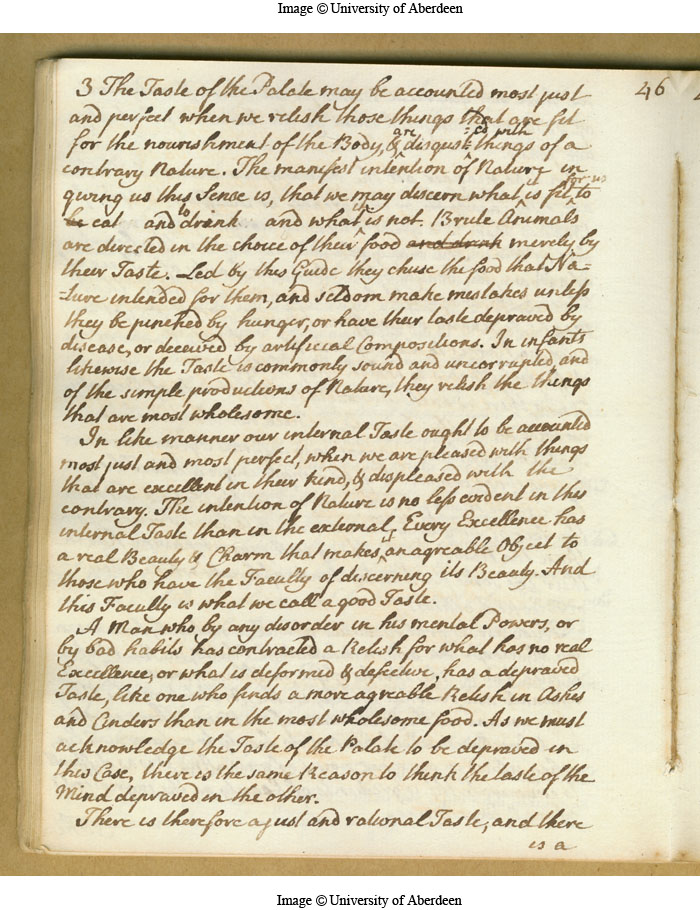 Image © University of Aberdeen
46
3 The Taste of the Palate may be accounted most just
and perfect when we relish those things that are fit
for the nourishment of the Body, & are disgusted with things of a
contrary Nature. The manifest intention of Nature in
giving us this Sense is, that we may discern what is fit for us to
be eat and to drink and what is not. Brute Animals
are directed in the choice of their food and drink merely by
their Taste. Led by this Guide they chuse the food that Na=
=ture intended for them, and seldom make mistakes unless
they be pinched by hunger, or have their taste depraved by
disease, or deceived by artificial Compositions. In infants
likewise the Taste is commonly sound and uncorrupted, and
of the simple productions of Nature, they relish the things
that are most wholesome.
In like manner our internal Taste ought to be accounted
most just and most perfect, when we are pleased with things
that are excellent in their kind, & displeased with the
contrary. The intention of Nature is no less evident in this
internal Taste than in the external, Every Excellence has
a real Beauty & Charm that makes it an agreable Object to
those who have the Faculty of discerning its Beauty. And
this Faculty is what we call a good Taste.
A Man who by any disorder in his mental Powers, or
by bad habits has contracted a Relish for what has no real
Excellence, or what is deformed & defective, has a depraved
Taste, like one who finds a more agreable Relish in Ashes
and Cinders than in the most wholesome food. As we must
acknowledge the Taste of the Palate to be depraved in
this Case, there is the same Reason to think the taste of the
Mind depraved in the other.
There is therefore a just and rational Taste, and there
is a
Image © University of Aberdeen